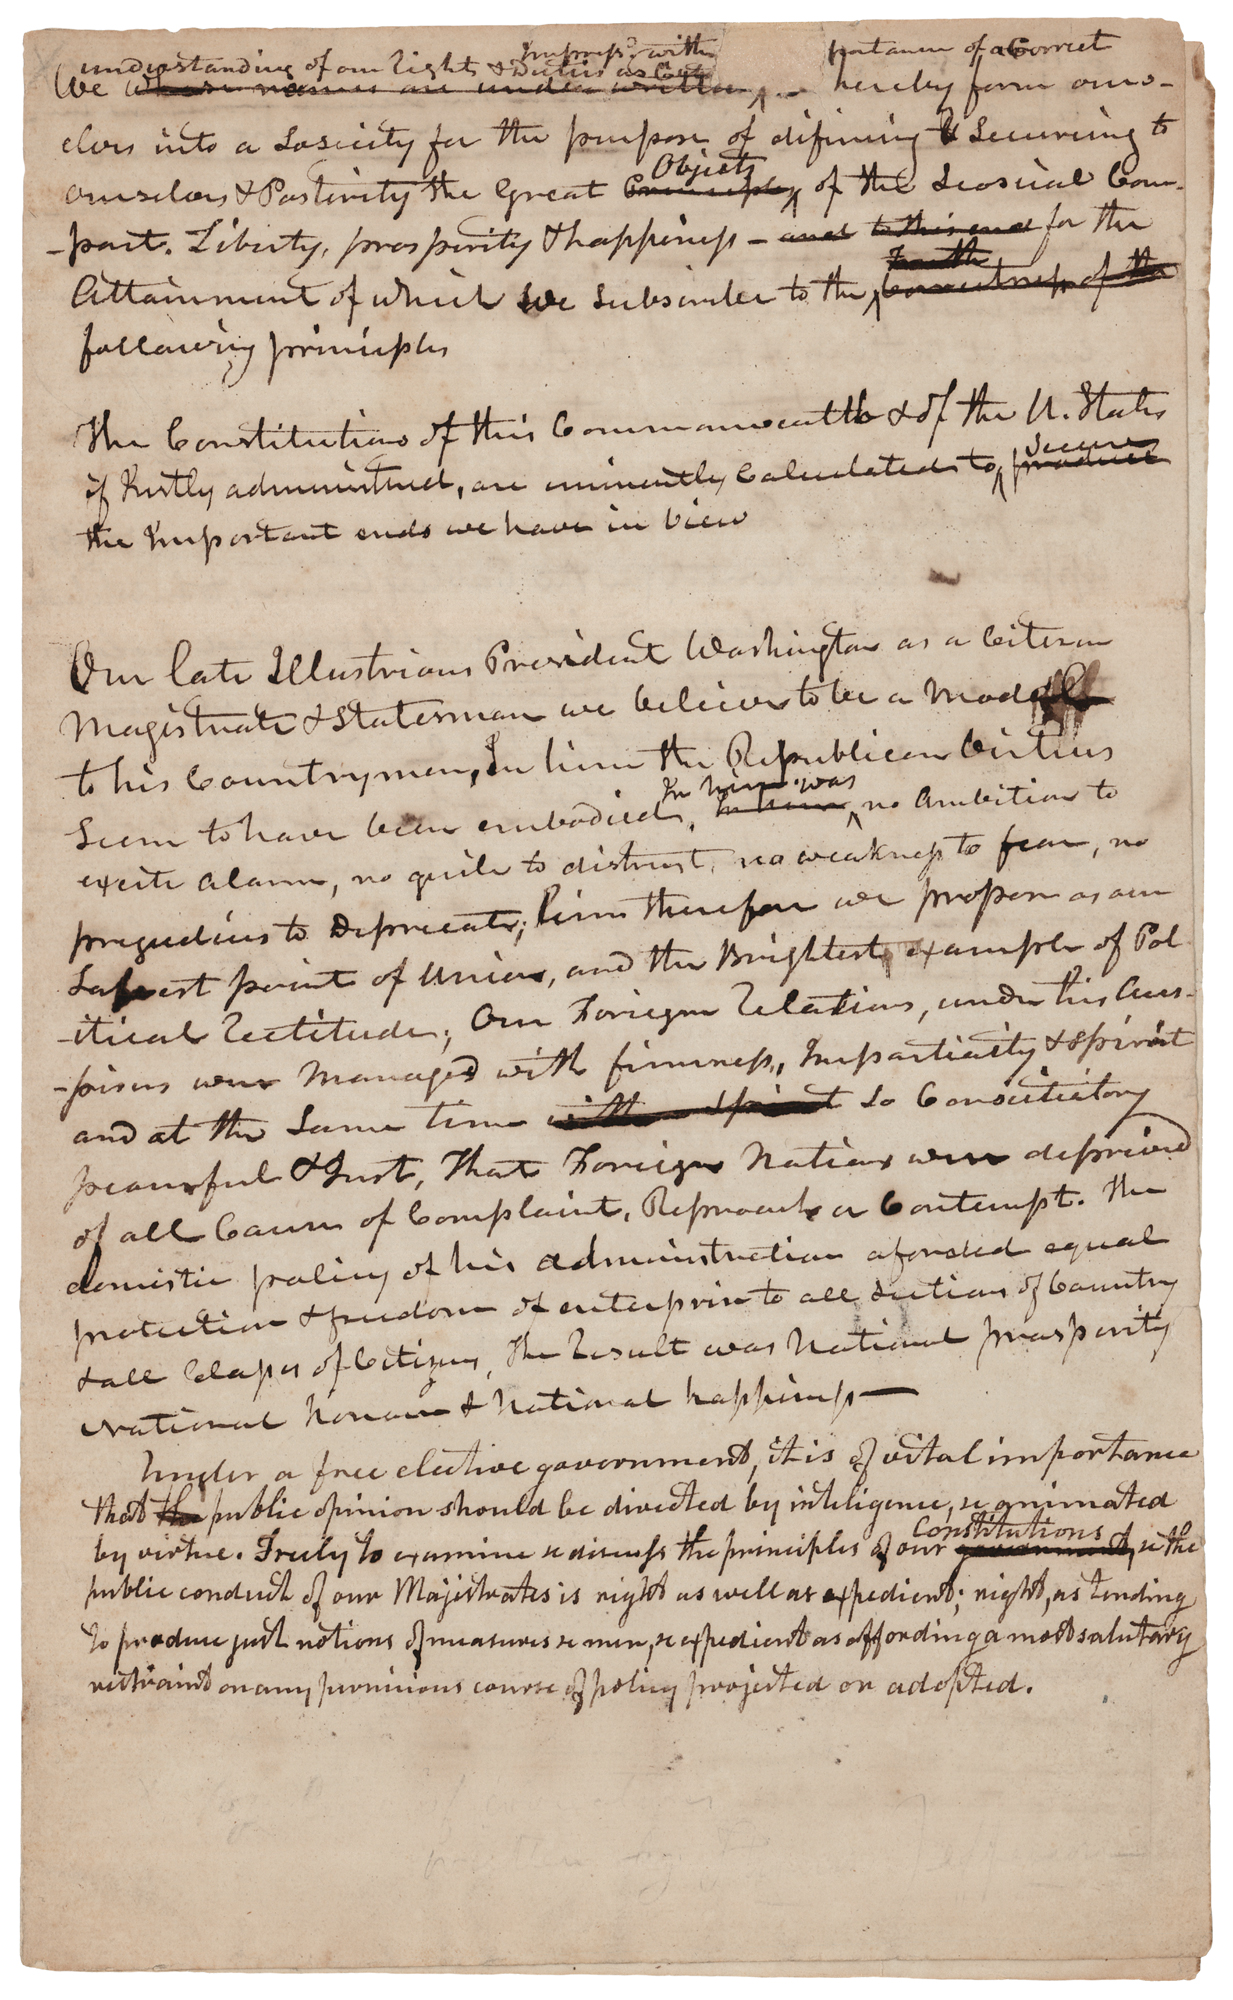 Impress'd with portance of a Correct
understanding of our rights & Duties as Cit
We whose names are under written, hereby form ours-
elves into a Sosiety for the purpose of difining & Secureing to
ourselves & Posterity the Great Principles Objects of the Sosical Com-
-pact. Liberty, prosperity & happiness - and to this end for the
Attainment of which we subscribe to the truth Correctness of the
following principles
The Constitution of this Commonwealth & of the U. States
if Justly administred, are eminently Calculated to produce Secure
the Important ends we have in view
Our late Illustrious President Washington as a Citizen
Magistrate & Statesman we believe to be a Modell
to his Countrymen, In him the Republican Virtues
Seem to have been embodied, In him In him was no Ambition to
excite alarm, no guile to distrust, no weakness to fear, no
pregudices to Depricate; him therefore we propose as our
Safest point of Union, and the Brightest example of Pol
-itical rectitude; Our Foriegn relations, under his Aus-
-pices were Managed with firmness, Impartiality & spirit
and at the same time with spirit so Conciliatory
peacesful & Just, that Foriegn Nations were deprived
of all Cause of Complaint, Reproach or Contempt. The
domistic policy of his administration aforded equal
protection & freedom of enterprise to all Sections of Country
& all Classes of Citizens, The result was National prosperity
national honour & National happiness —
Under a free elective government, it is of vital importance
that the public opinion should be directed by inteligence, & animated
by virtue. Freely to examine & discuss the principles of our government, Constitutions & the
public conduct of our Majistrates is right as well as expedient; right, as tending
to produce just notions of measures & men, & expedient as affording a most salutary
restraint on any pernicious course of policy projected or adopted.